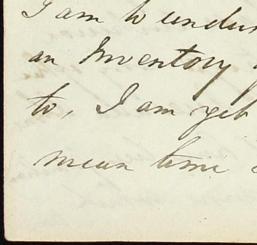 I am to under
an Inventory
to, I am yet
mean time